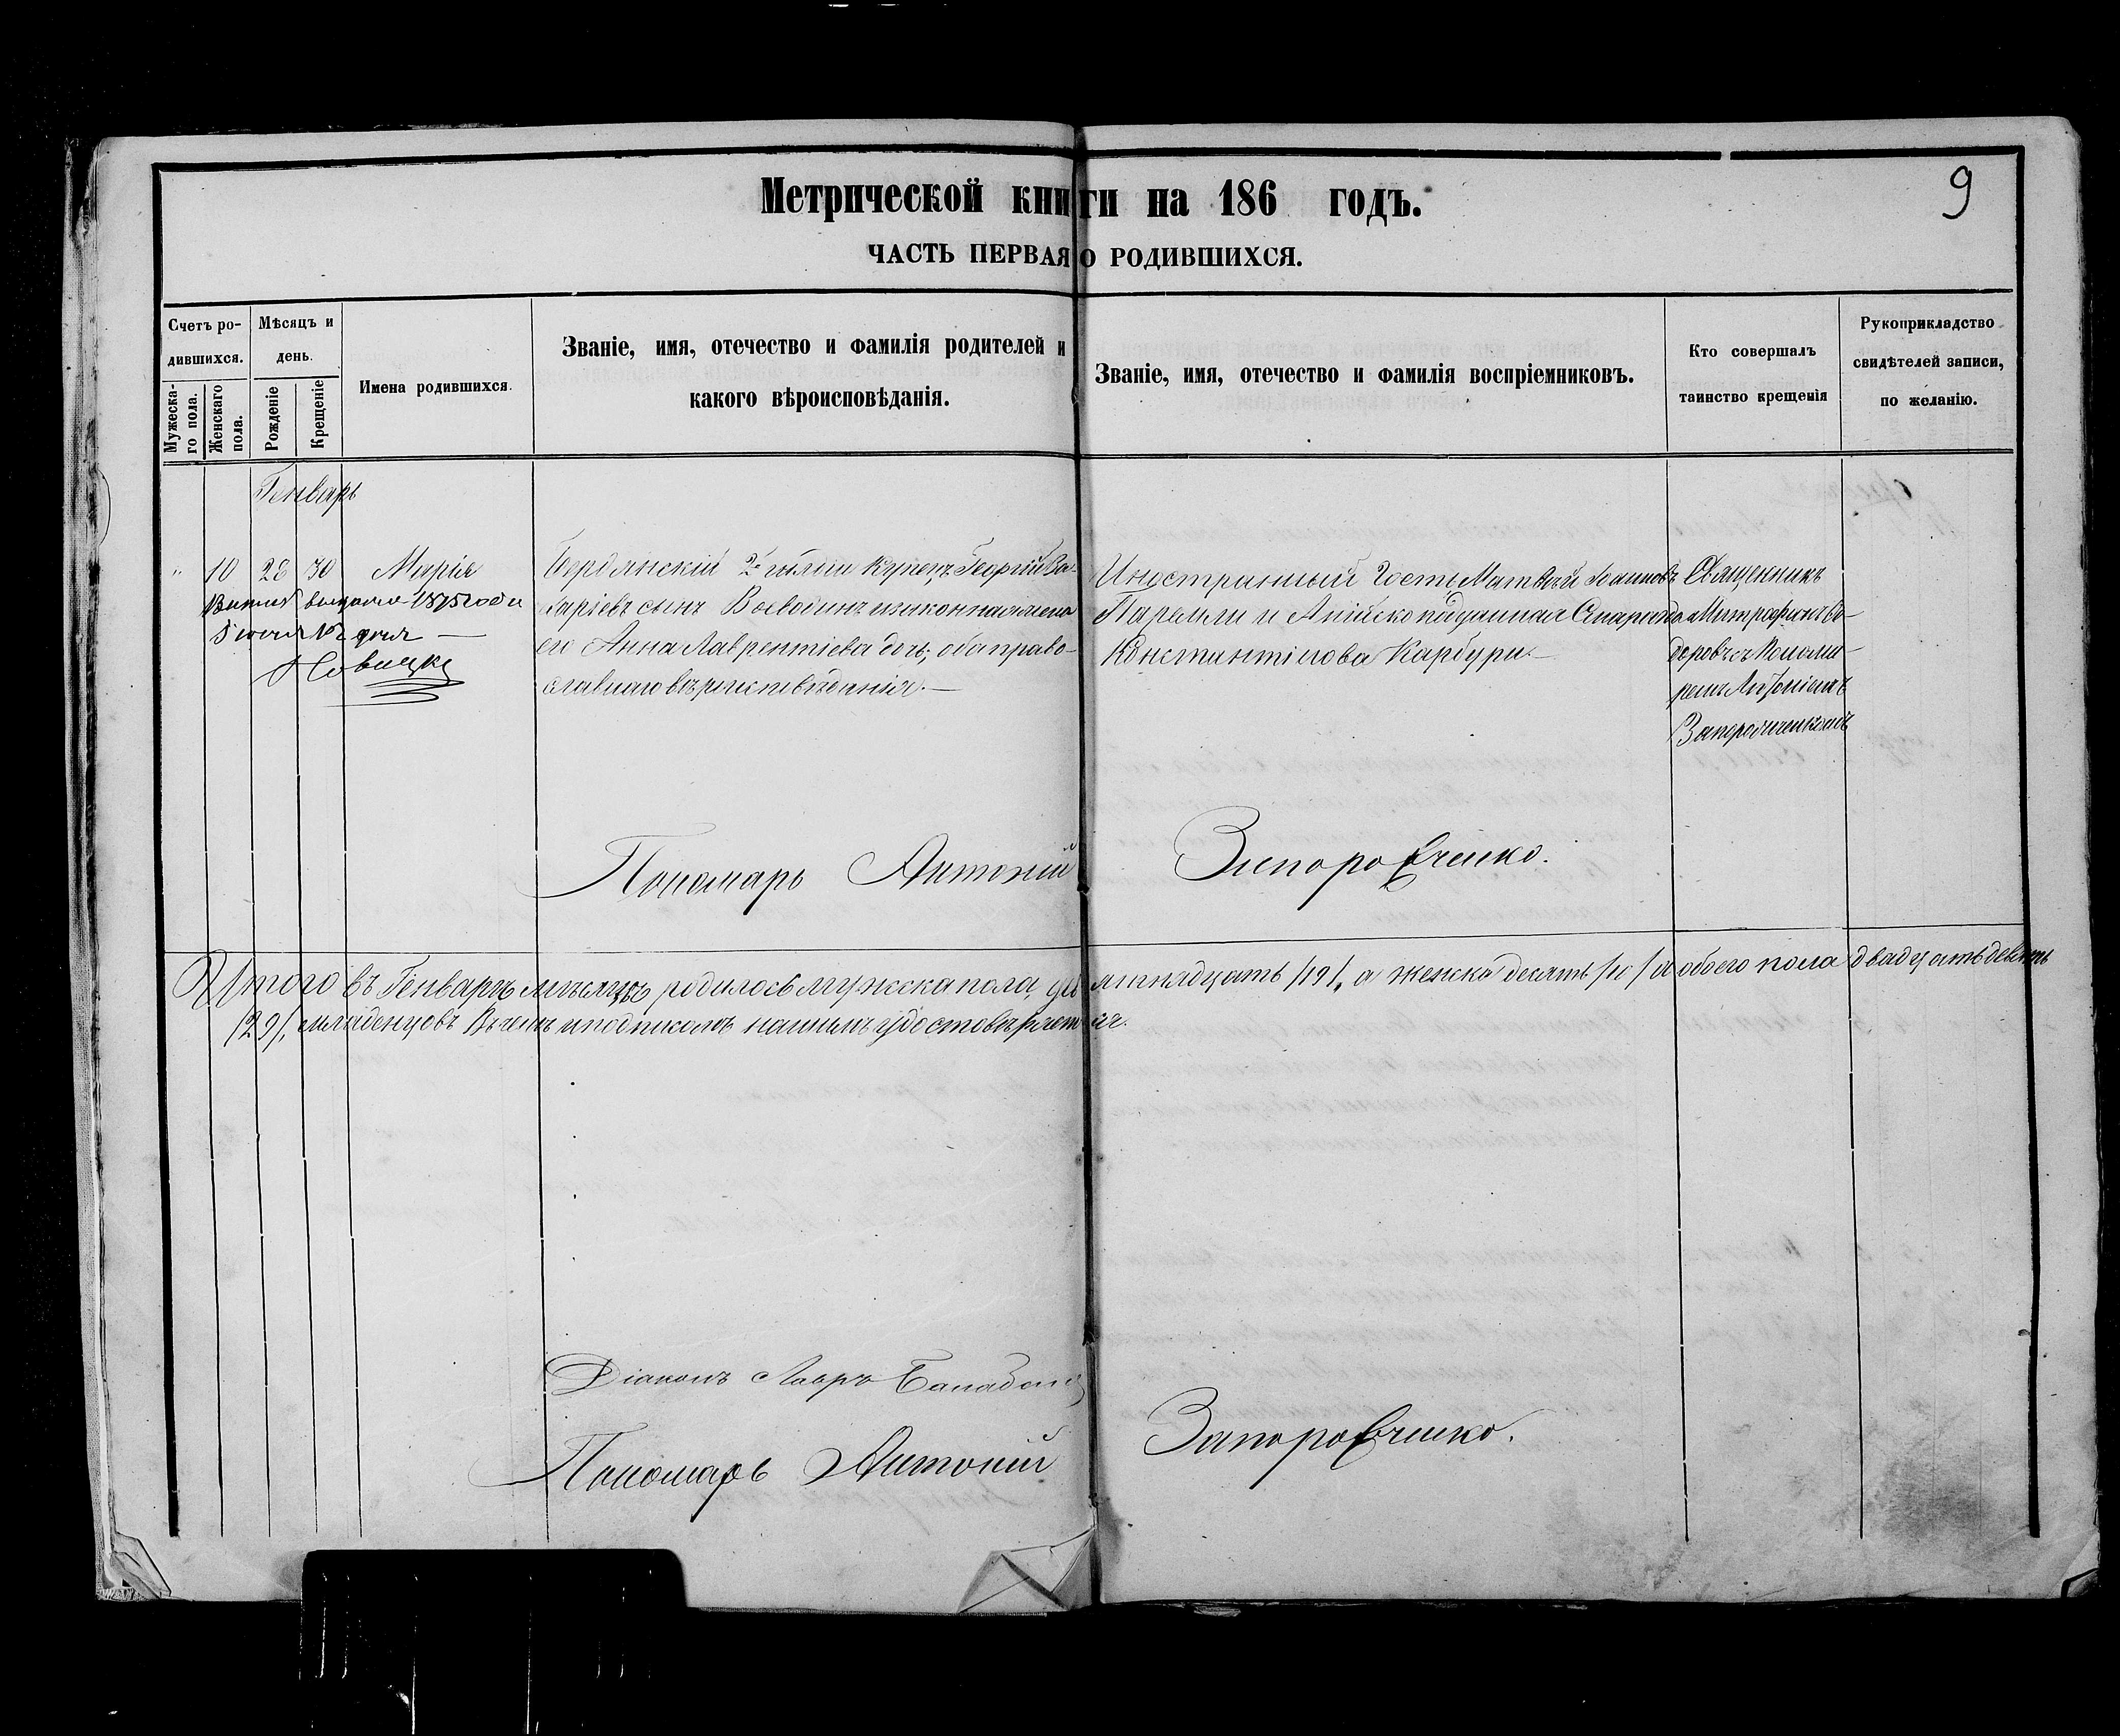 9
Метрической книги на 186 годъ.
ЧАСТЬ ПЕРВАЯ О РОДИВШИХСЯ.
Счетъ ро-
дившихся.
Мужеска-
го пола.
Женскаго
пола.
Мѣсяцъ и
день.
Рожденіе
Крещеніе
Имена родившихся.
Званіе, имя, отечество и фамилія родителей и
какого вѣроисповѣданія.
Званіе, имя, отечество и фамилія воспріемниковъ.
Кто совершалъ
таинство крещенія
Рукоприкладство
свидѣтелей записи,
по желанію.
Генварь
" 10 28 30 Марія
1875 года
дня
Новицкій
Бердянскій 2й гильдіи купецъ Георгій За-
харіевъ сынъ Воеводинъ и законная жена
его Анна Лаврентіева дочь, оба право-
славнаго вѣроисповѣданія.
Иностранный Гость Матвѣй Іоанновъ
и подданная
Константинова Карбури
Священникъ
Митрофанъ
съ Понома-
ремъ Антоніемъ
Запорожченкомъ
Пономарь Антоній Запорожченко.
Итого въ Генварѣ мѣсяцѣ родилось мужеска пола девятнадцать /19/, а женска десять /10/ а обоего пола двадцать девять
/29/, младенцовъ В чемъ и подписомъ нашимъ удостовѣряется.
Діаконъ Лавръ
Пономарь Антоній Запорожченко.